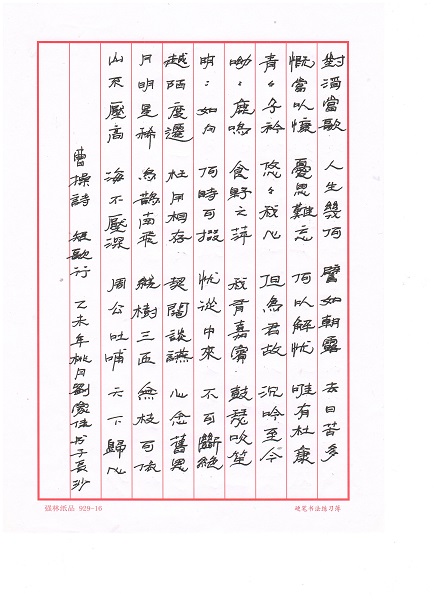 對酒當歌 人生幾何 譬如朝露 去日苦多
慨當以慷 憂思難忘 何以解忧 唯有杜康
青〻子衿 悠〻我心 但為君故 沉吟至今
呦〻鹿鳴 食野之萍 我有嘉賓 鼓瑟吹笙
明〻如月 何時可掇 忧從中來 不可斷絕
越陌度遷 枉用相存 契闊談讌 心念舊恩
月明星稀 烏鵲南飛 繞樹三匝 無枝可依
山不壓高 海不壓深 周公吐哺 天下歸心
曹操詩 短歌行 乙未年桃月劉家佳书于長沙
强林纸品 929-16
硬笔书法练习簿